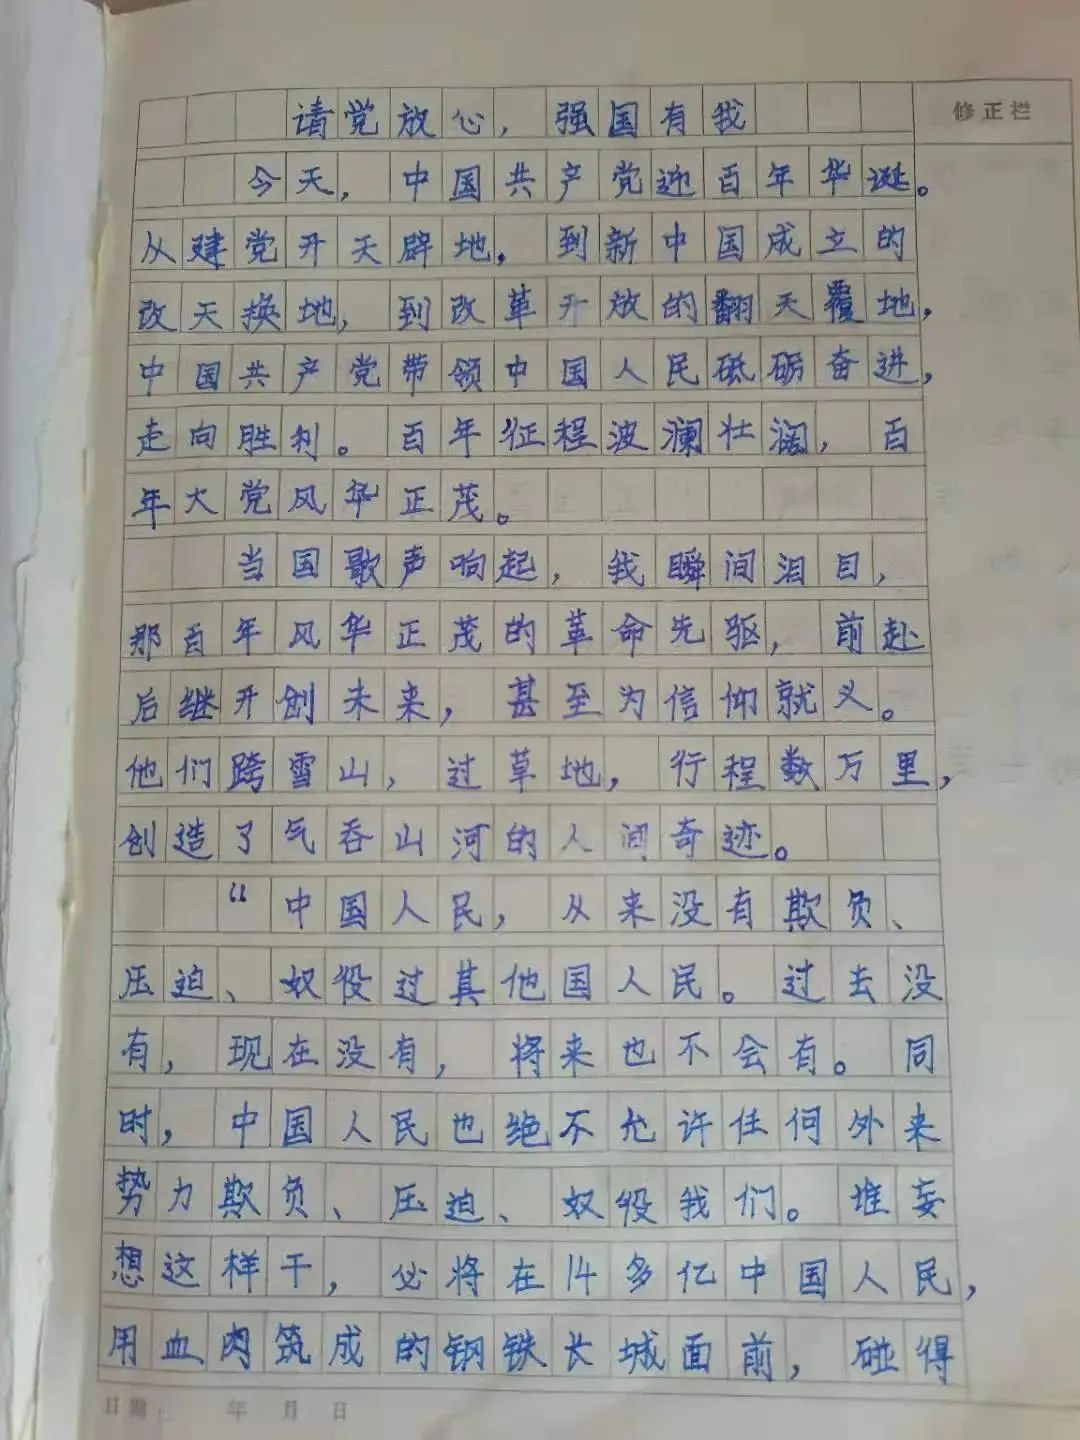 请党放心，强国有我
修正栏
今天，中国共产党迎百年华诞。
从建党开天辟地，到新中国成立的
改天换地，到改革开放的翻天覆地，
中国共产党带领中国人民砥砺奋进，
走向胜利。百年征程波澜壮阔，百
年大党风华正茂。
当国歌声响起，我瞬间泪目，
那百年风华正茂的革命先驱，前赴
后继开创未来，甚至为信仰就义。
他们跨雪山，过草地，行程数万里，
创造了气吞山河的人间奇迹。
“中国人民，从来没有欺负、
压迫、奴役过其他国人民。过去没
有，现在没有，将来也不会有。同
时，中国人民也绝不允许任何外来
势力欺负、压迫、奴役我们。堆妄
想这样干，必将在14多亿中国人民，
用血肉筑成的钢铁长城面前，碰得
日期： 年 月 日